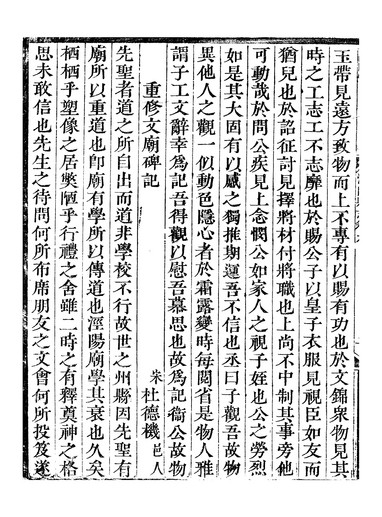 玉帶見遠方致物而上不專有以賜有功也於文錦衆物見其
時之工志工不志靡也於賜公子以皇子衣服見視臣如友而
猶兒也於詔征討見擇將材付將職也上尚不中制其事旁他
可動哉於問公疾見上念憫公如家人之視子姪也公之勞烈
如是其大固有以感之獨推期運吾不信也丞曰子觀吾故物
異他人之觀一似動色隱心者於霜露變時每閱省是物人雅
謂子工文辭幸為記吾得觀以慰吾慕思也故為記衞公故物
重修文廟碑記
宋 杜德機 邑人
先聖者道之所自出而道非學校不行故世之州縣因先聖有
廟所以重道也卽廟有學所以傳道也涇陽廟學其衰也久矣
栖栖乎塑像之居奬陋乎行禮之舍雖二時之有釋奠神之格
思未敢信也先生之待問何所布席朋友之文會何所投笈遂